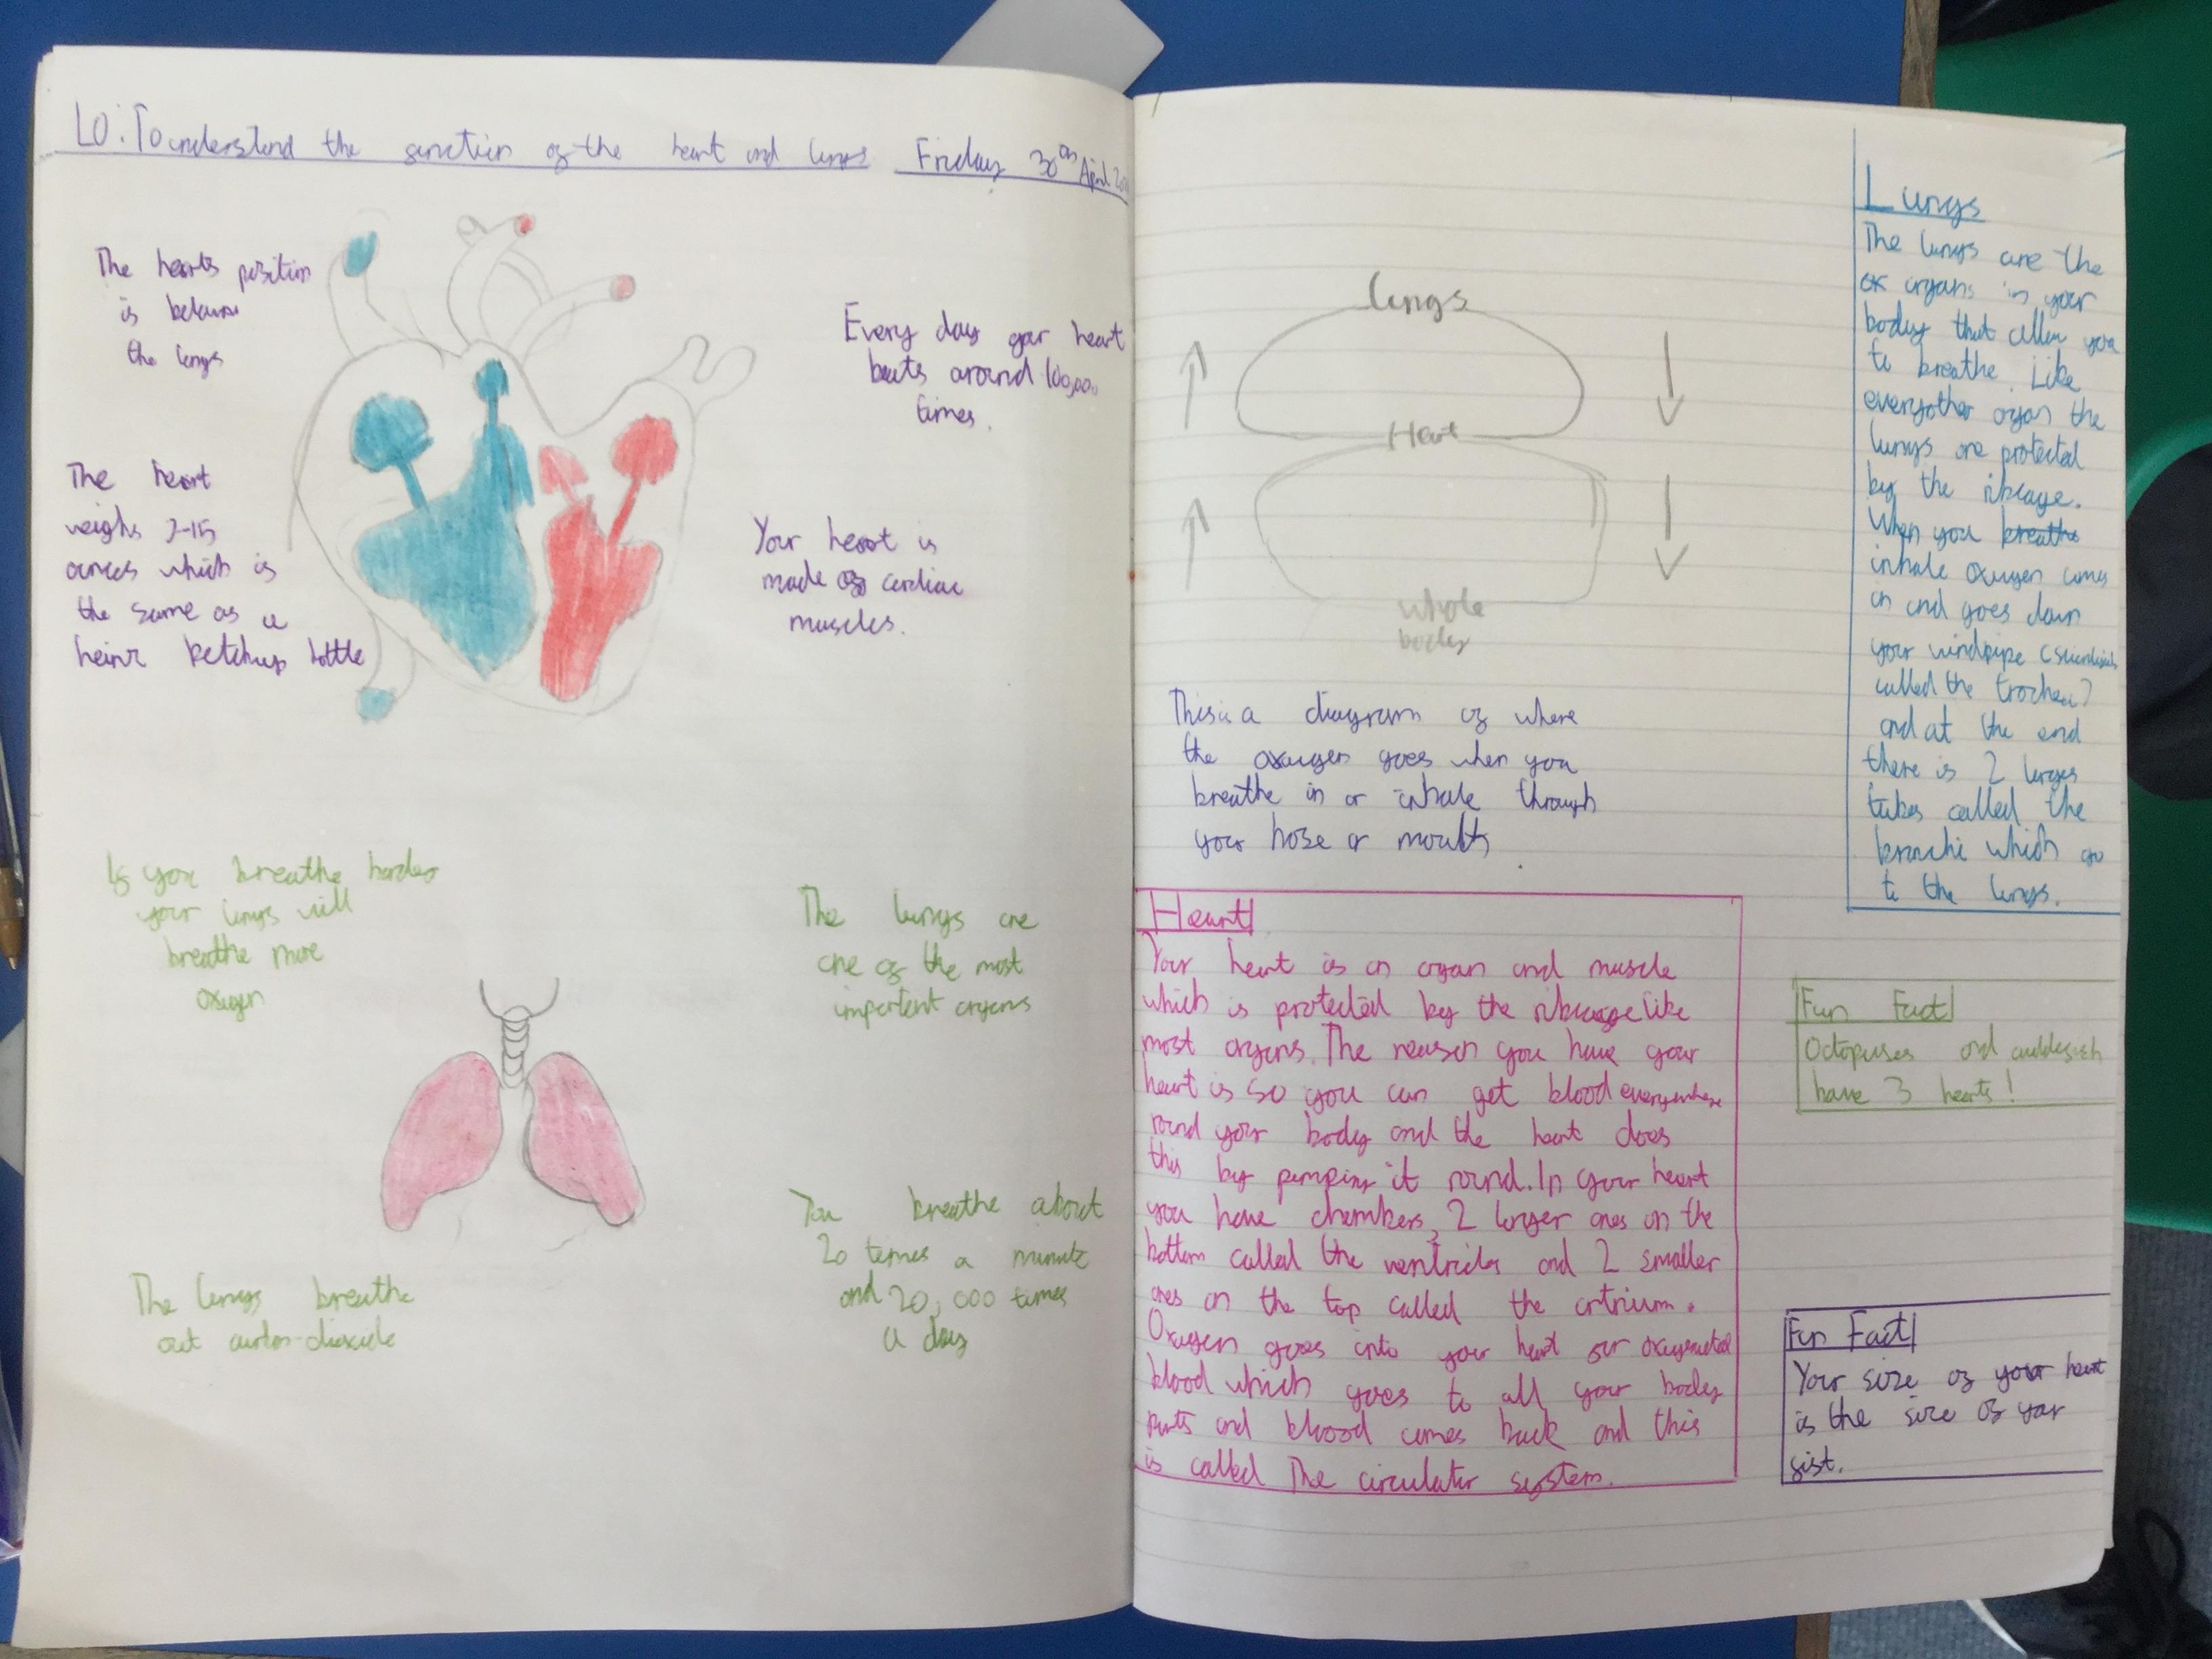 LO: To understand the function of the heart and lungs Friday 30th April
The hearts position
is between
the lungs
Every day your heart
beats around 100,000
times.
The heart
weighs 7-15
ounces which is
the same as a
heinz ketchup bottle
Your heart is
made of cardiac
muscles.
If you breathe harder
your lungs will
breathe more
oxygen
The lungs are
one of the most
important organs
The lungs breathe
out carbon-dioxide
You breathe about
20 times a minute
and 20,000 times
a day
lungs
Heart
whole
body
This is a diagram of where
the oxygen goes when you
breathe in or inhale through
your nose or mouth
Heart
Your heart is an organ and muscle
which is protected by the ribcage like
most organs. The reason you have your
heart is so you can get blood everywhere
round your body and the heart does
this by pumping it round. In your heart
you have chembers, 2 larger ones on the
bottom called the ventricles and 2 smaller
ones on the top called the artrium.
Oxygen goes into your heart for oxygenated
blood which goes to all your body
parts and blood comes back and this
is called The circulator system.
Lungs
The lungs are the
organs in your
body that allow you
to breathe. Like
everyother organ the
lungs are protected
by the ribcage.
When you breathe
inhale oxygen comes
in and goes down
your windpipe
called the trachea)
and at the end
there is 2 larges
tubes called the
bronchi which go
to the lungs.
Fun Fact
Octopuses and cuddlefish
have 3 hearts!
Fun Fact
Your size of your heart
is the size of your
fist.